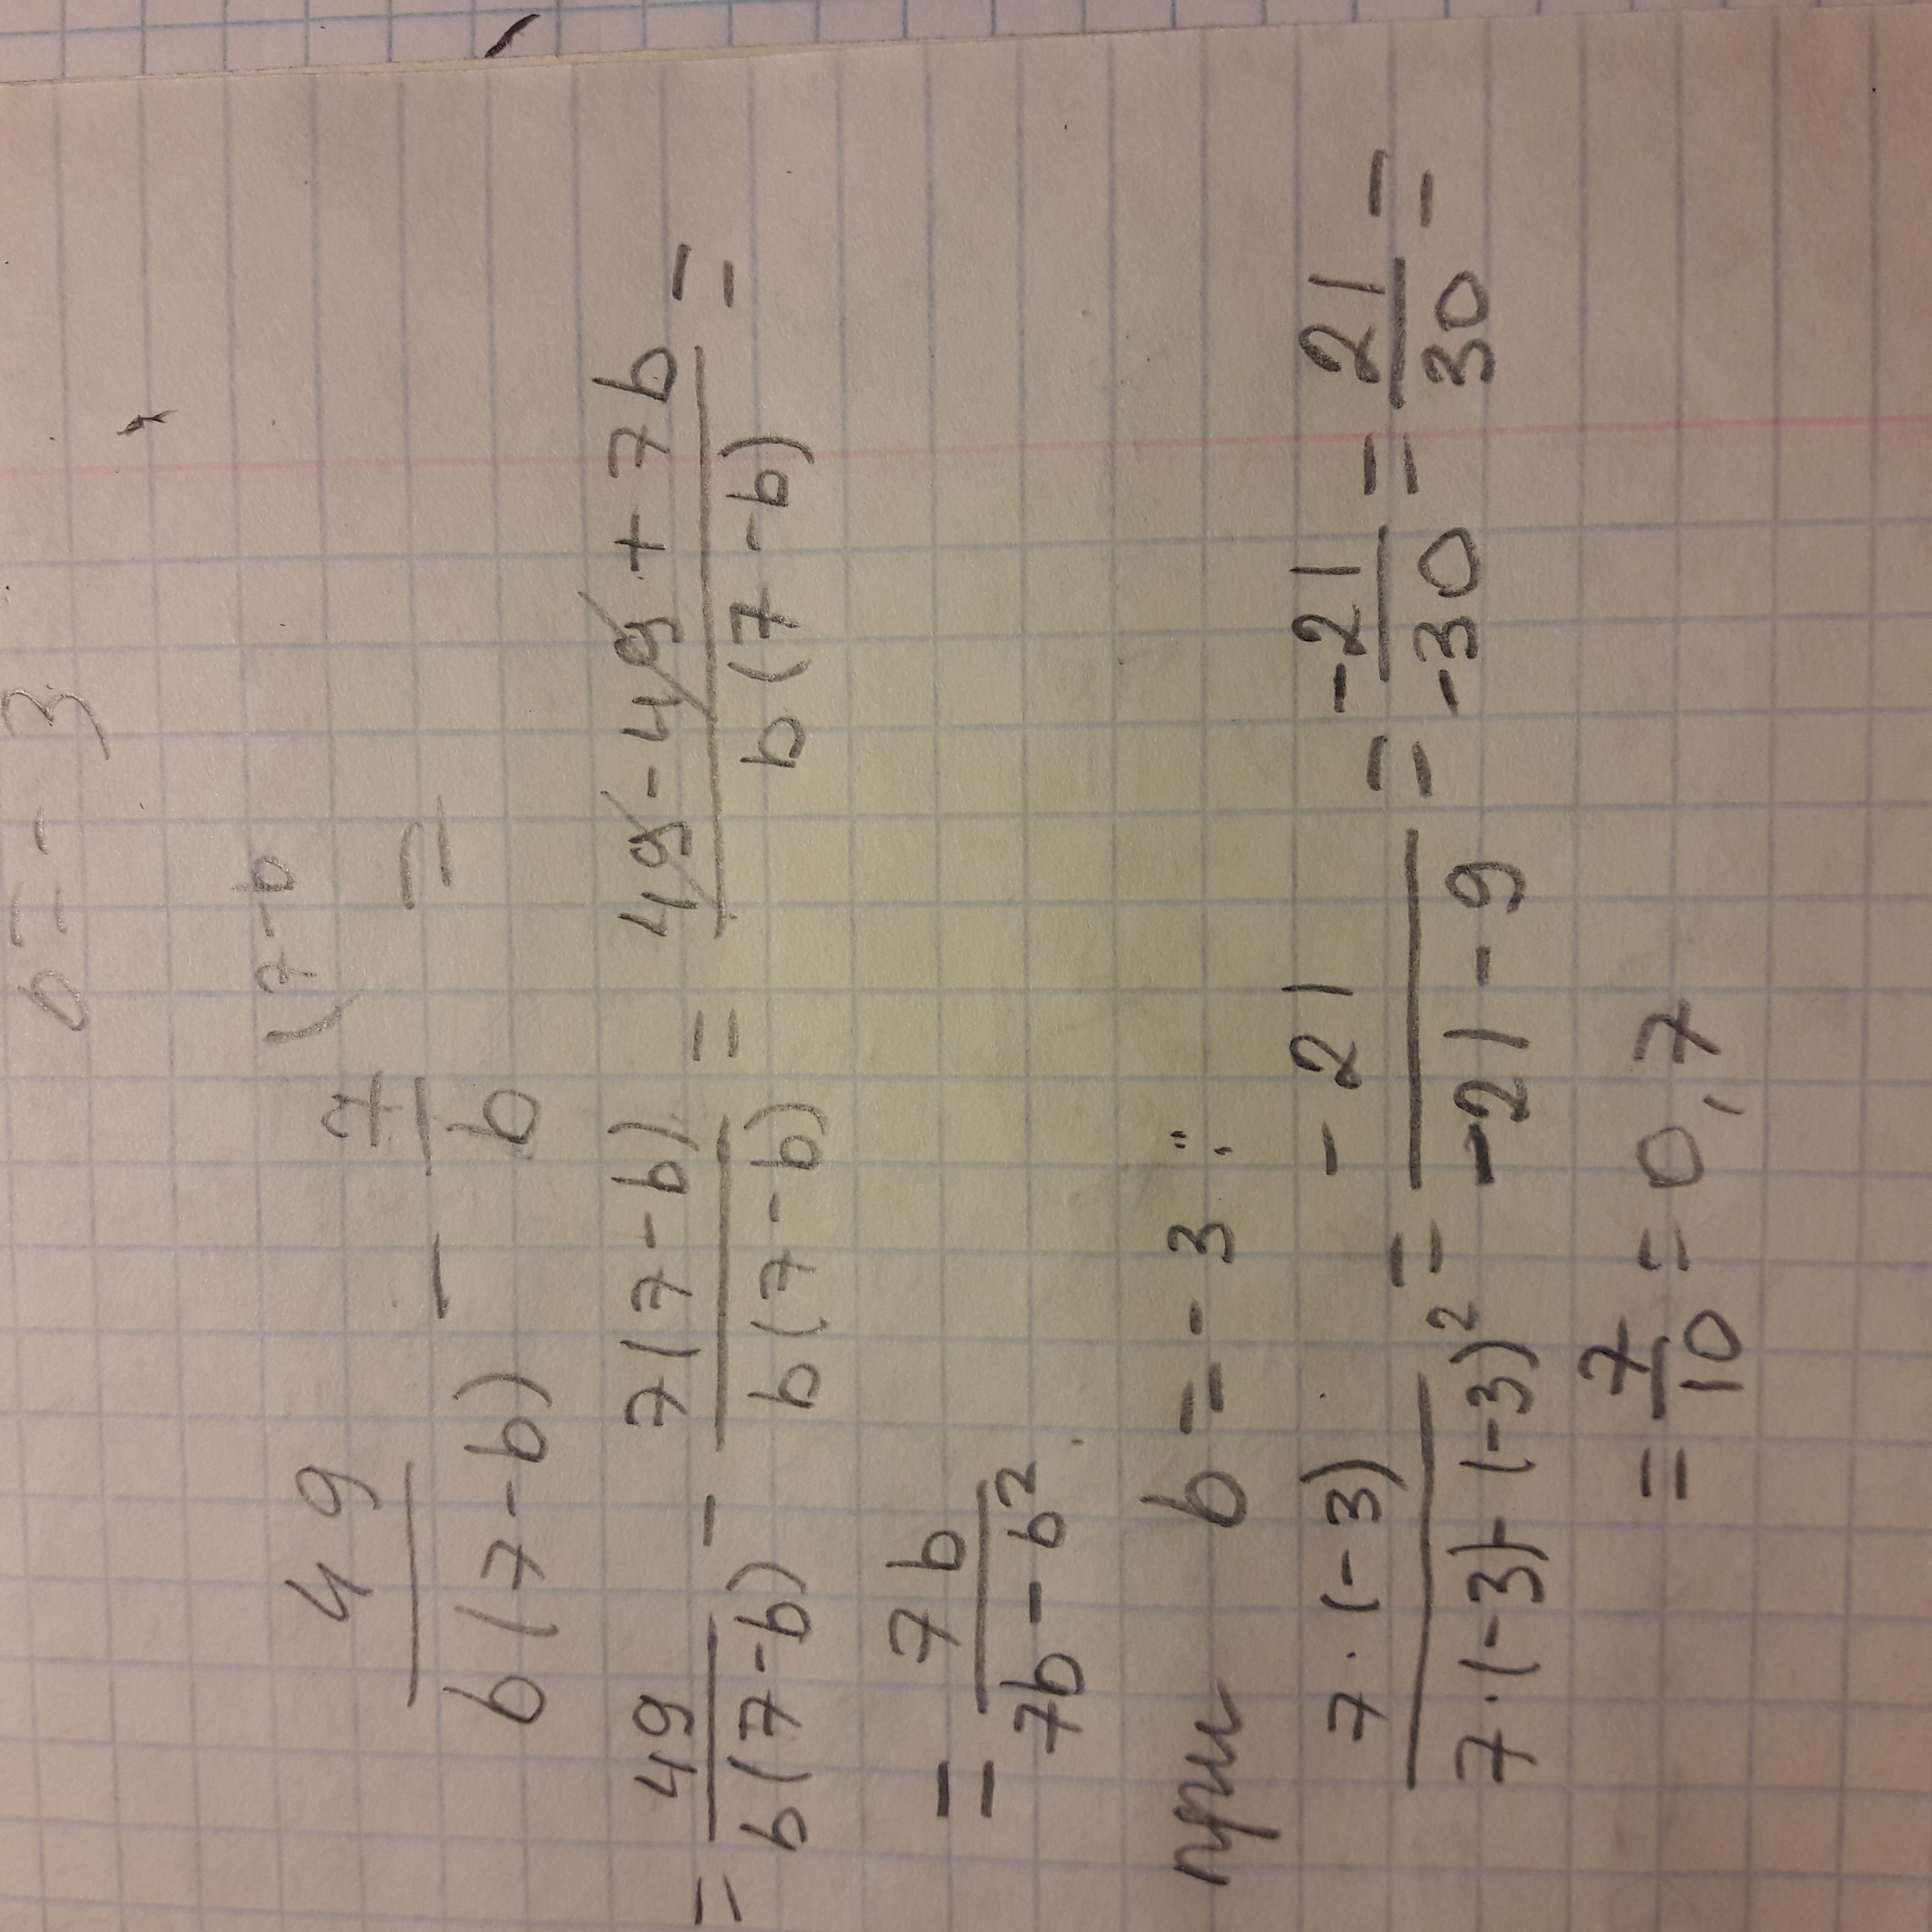 b = - 3
(7-b
49/b(7-b) - 7/b =
= 49/b(7-b) - 7(7-b)/b(7-b) = 49-49+7b/b(7-b) =
= 7b/7b-b²
при b = - 3 :
7·(-3)/7·(-3)-(-3)² = -21/-21-9 = -21/-30 = 21/30 =
= 7/10 = 0,7